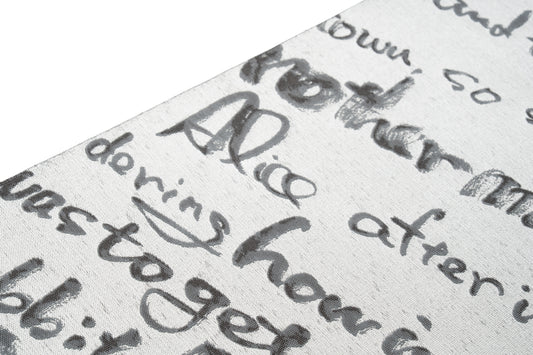 and
own, so s
nother m
Alice after i
dering how i
was to get
bbit